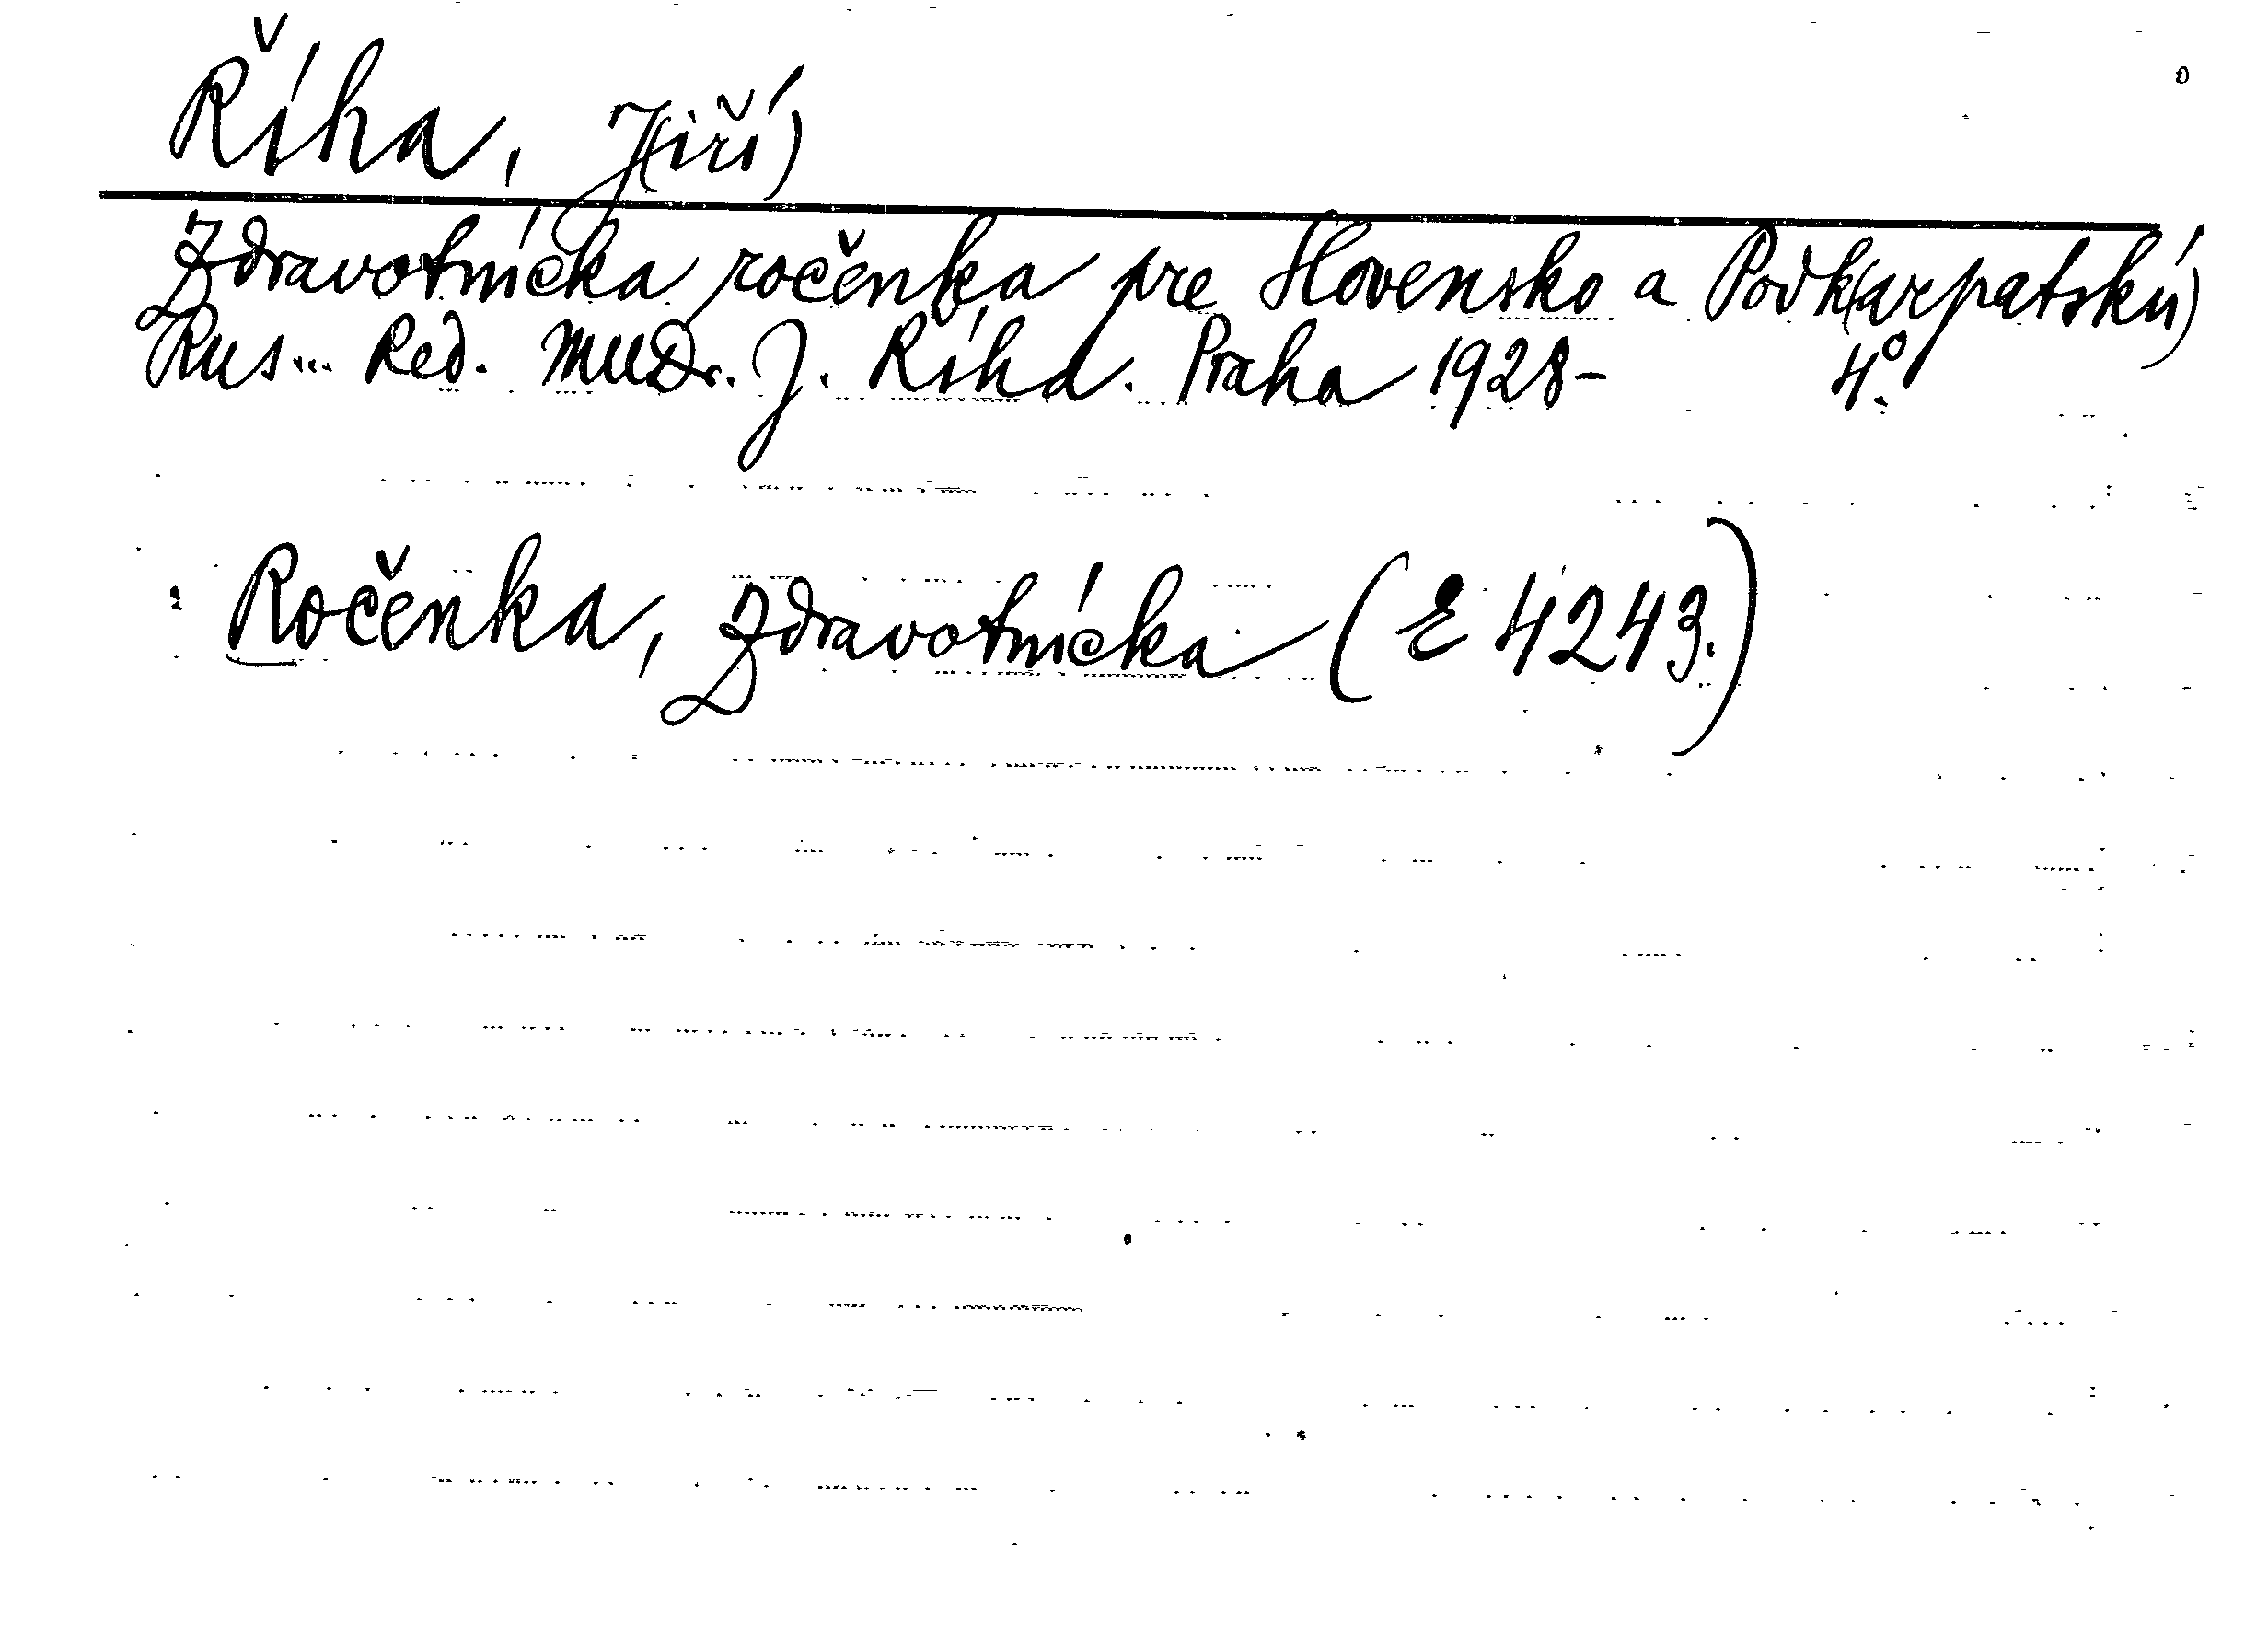 Říha, J(iří)
Zdravotnícka ročenka pre Slovensko a Podk(arpatskú)
Rus... Red. MUDr. J. Ríha. Praha 1928- 4°.
Ročenka, Zdravotnícka (E 4243.)